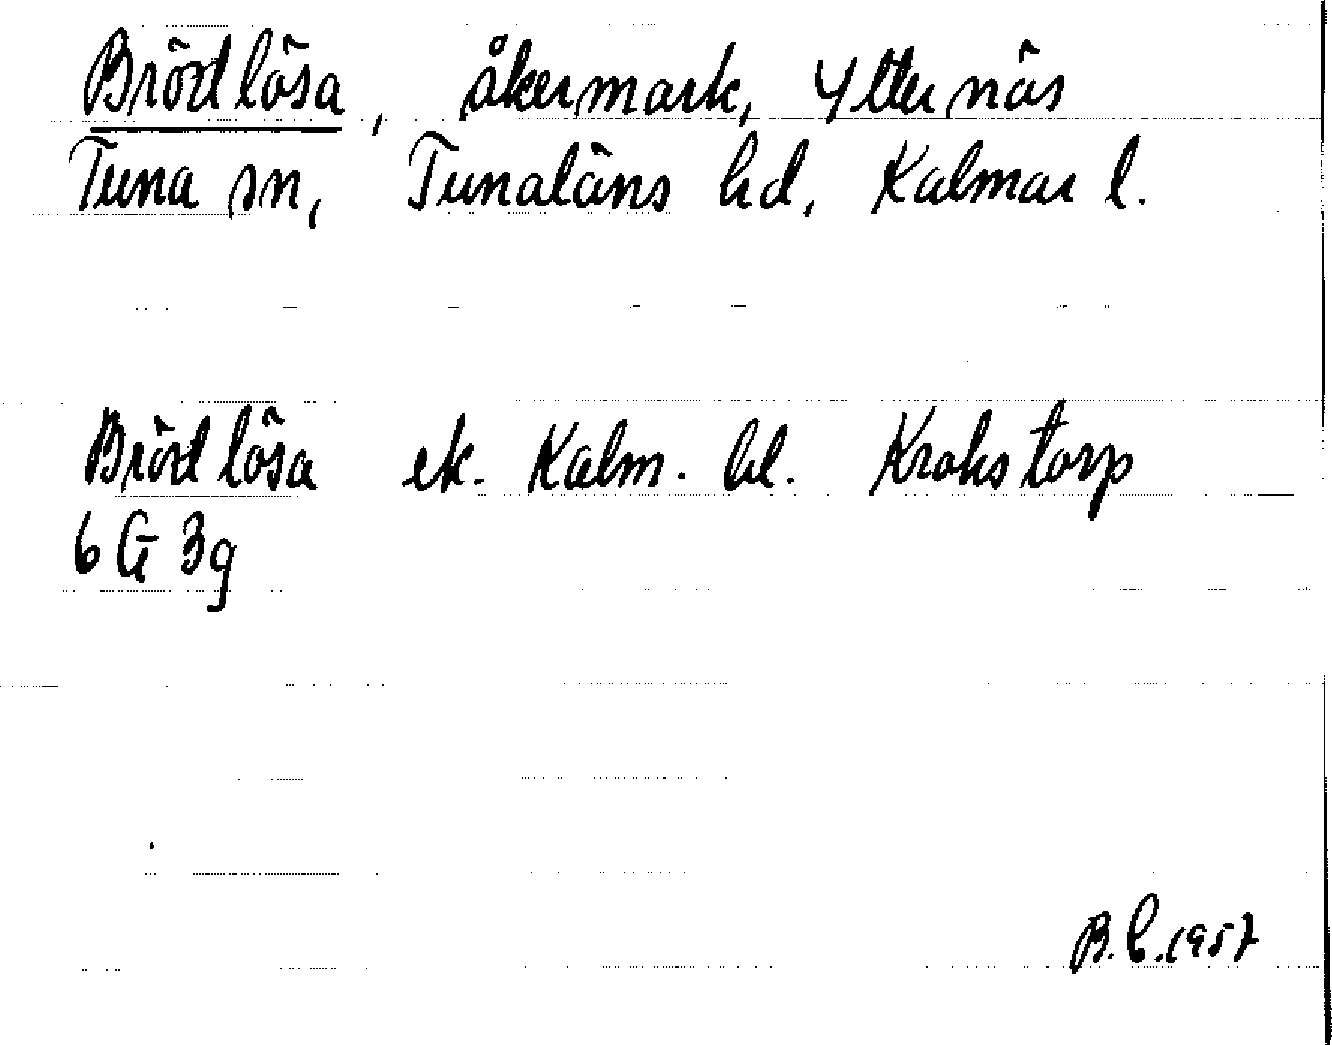 Brödlösa, åkermark, Ytternäs
Tuna sn, Tunaläns hd, Kalmar l.
Brödlösa ek. Kalm. bl. Krokstorp
6 G 3g
B.C. 1957